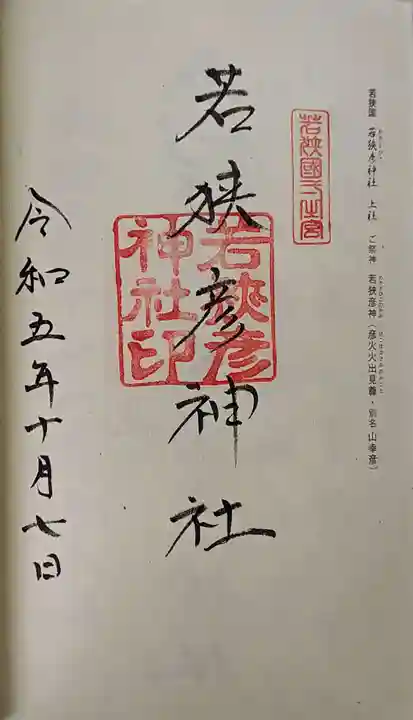 若狭国 若狭彦神社 上社 ご祭神 若狭彦神(彦火火出見尊・別名 山幸彦)
若狹國一之宮
若狭彦神社
若狹彦
神社印
令和五年十月七日